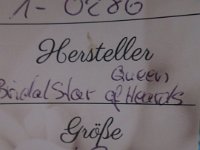 1-0286
Hersteller
Queen
Bridal Star of Hearts
Größe